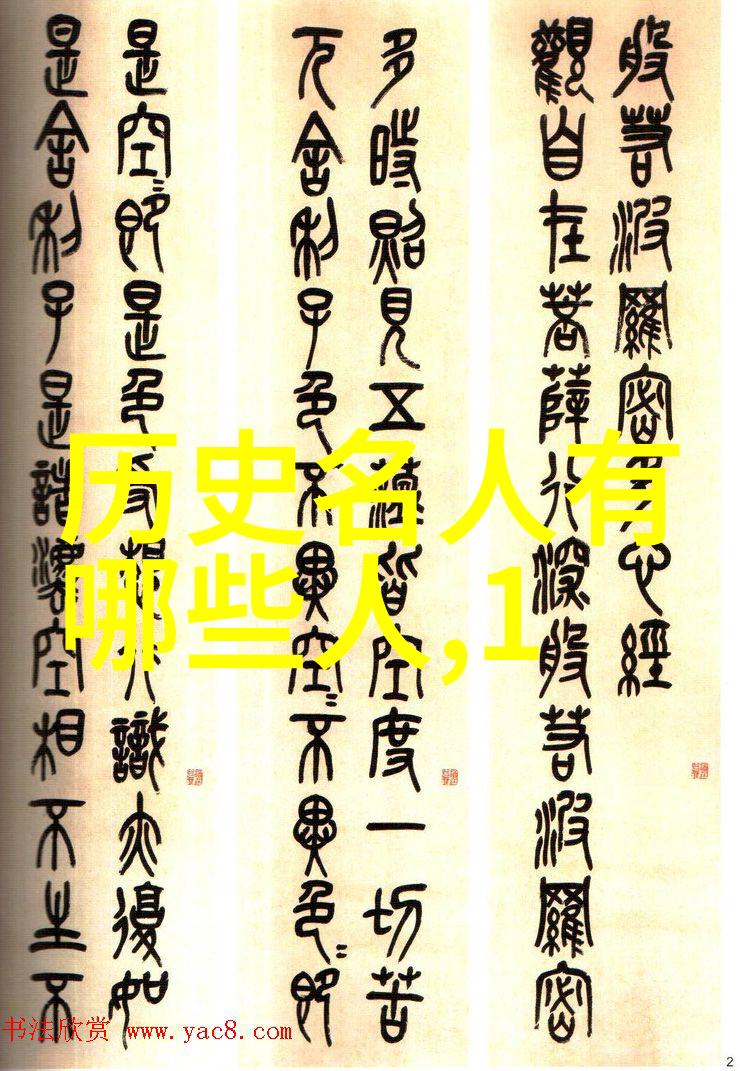 般若波羅密多心經
觀自在菩薩行深般若波羅密
多時照見五蘊皆空度一切苦
厄舍利子色不異空〻不異色〻即
是空〻即是色受想行識亦復如
是舍利子是諸法空相不生不
历史名人有
哪些人,1
书法欣赏 www.yac8.com
2